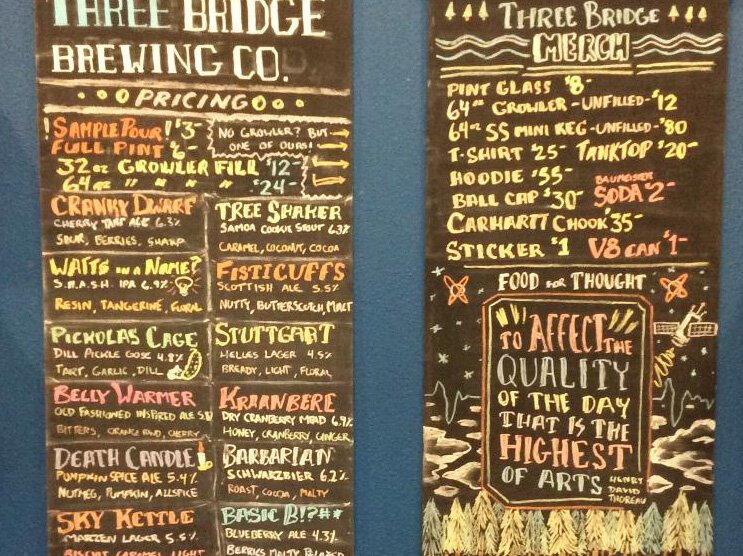 THREE BRIDGE
BREWING CO.
PRICING
SAMPLE POUR! $3-
FULL PINT $6-
NO GROWLER? BUY
ONE OF OURS!
32 oz GROWLER FILL $12-
64 oz " " " $24-
CRANKY DWARF
CHERRY TART ALE 6.3%
SOUR, BERRIES, SHARP
WATTS IN A NAME?
S.M.A.S.H. IPA 6.9%
RESIN, TANGERINE, FLORAL
PICKOLAS CAGE
DILL PICKLE GOSE 4.8%
TART, GARLIC, DILL
BELLY WARMER
OLD FASHIONED INSPIRED ALE
BITTERS, ORANGE RIND, CHERRY
DEATH CANDLE
PUMPKIN SPICE ALE 5.4%
NUTMEG, PUMPKIN, ALLSPICE
SKY KETTLE
MARZEN LAGER 5.5%
BISCUIT, CARAMEL, LIGHT
TREE SHAKER
SAMOA COOKIE STOUT 6.3%
CARAMEL, COCONUT, COCOA
FISTICUFFS
SCOTTISH ALE 5.5%
NUTTY, BUTTERSCOTCH, MALT
STUTTGART
HELLES LAGER 4.5%
BREADY, LIGHT, FLORAL
KRAANBERE
DRY CRANBERRY MEAD 6.9%
HONEY, CRANBERRY, GINGER
BARBARIAN
SCHWARZBIER 6.2%
ROAST, COCOA, MALTY
BASIC B!?#*
BLUEBERRY ALE 4.3%
BERRIES, MALTY,
THREE BRIDGE
MERCH
PINT GLASS $8-
64 oz GROWLER -UNFILLED- $12
64 oz SS MINI KEG -UNFILLED- $80
T-SHIRT $25- TANKTOP $20-
HOODIE $55-
BALL CAP $30-
BAUMEISTER
SODA $2-
CARHARTT CHOOK $35-
STICKER $1 V8 CAN $1-
FOOD FOR THOUGHT
"TO AFFECT" THE
QUALITY
OF THE DAY
THAT IS THE
HIGHEST
OF ARTS
HENRY
DAVID
THOREAU